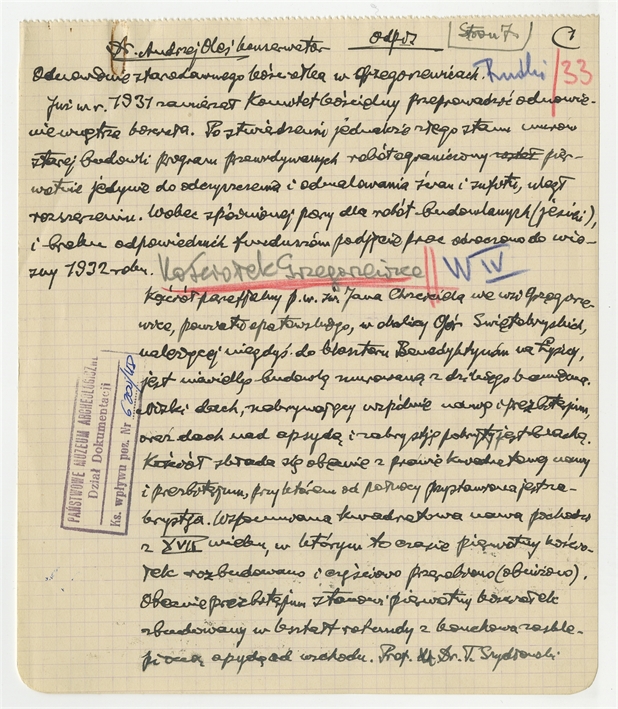 Dr. Andrzej Oleś konserwator odpis Stron 7
Odnowienie starodawnego kościółka w Grzegorzewicach. Rudki 33
Już w r. 1931 zamierzał Komitet kościelny przeprowadzić odnowie-
nie wnętrza kościoła. Po stwierdzeniu jednakże złego stanu murów
starej budowli program przewidywanych robót ograniczony został pier-
wotnie jedynie do odczyszczenia i odmalowania ścian i sufitu, uległ
rozszerzeniu. Wobec spóźnionej pory dla robót budowlanych (jesień),
i braku odpowiednich funduszów podjęcie prac odroczono do wio-
sny 1932 roku. Kościołek Grzegorzewice W IV
Kościół parafjalny p.w. św. Jana Chrzciciela we wsi Grzegorze-
wice, powiatu opatowskiego, w okolicy Gór Świętokrzyskich,
należącej niegdyś do klasztoru Benedyktynów na Łyścu,
jest niewielką budowlą murowaną z dzikiego kamienia.
Niski dach, nakrywający wspólnie nawę i prezbiterjum,
oraz dach nad apsydą i zakrystją pokryty jest blachą.
Kościół składa się obecnie z prawie kwadratowej nawy
i prezbiterjum, przy którem od północy przystawiona jest za-
krystja. Wspomniana kwadratowa nawa pochodzi
z XVII wieku, w którym to czasie pierwotny kościo-
łek rozbudowano i częściowo przerobiono (obniżono).
Obecnie prezbiterjum stanowi pierwotny kościółek
zbudowany w kształt rotundy z konchową zaskle-
pioną apsydą od wschodu. Prof. Dr. T. Szydłowski
PAŃSTWOWE MUZEUM ARCHEOLOGICZNE
Dział Dokumentacji
Ks. wpływu poz. Nr